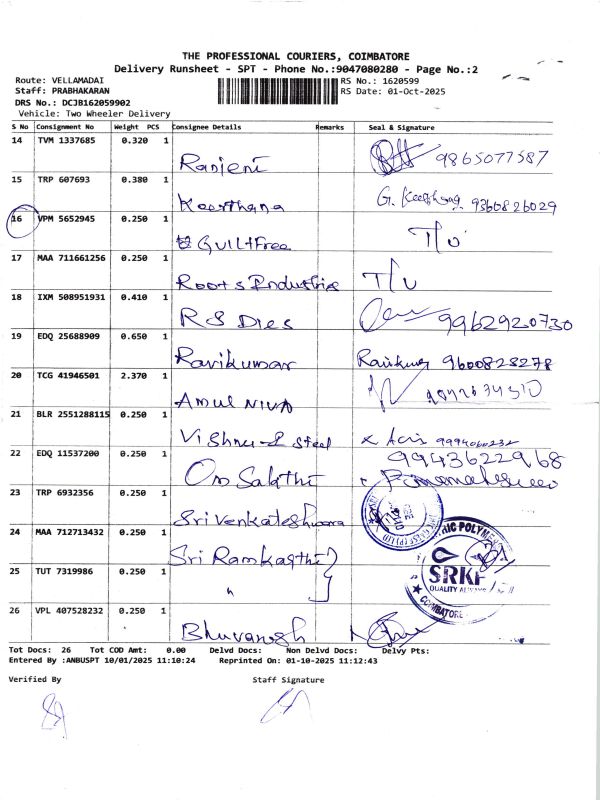 THE PROFESSIONAL COURIERS, COIMBATORE
Delivery Runsheet - SPT - Phone No.:9047080280 - Page No.:2
Route: VELLAMADAI RS No.: 1620599
Staff: PRABHAKARAN RS Date: 01-Oct-2025
DRS No.: DCJB162059902
Vehicle: Two Wheeler Delivery
S No Consignment No Weight PCS Consignee Details Remarks Seal & Signature
14 TVM 1337685 0.320 1
Ranjeni 9865077587
15 TRP 607693 0.380 1
Keerthana G. Keerthana 9360826029
16 VPM 5652945 0.250 1
GuiltFree T/U
17 MAA 711661256 0.250 1
Roots Industries T/U
18 IXM 508951931 0.410 1
R S Dies 9962920730
19 EDQ 25688909 0.650 1
Ravikumar Ravikumar 9600823278
20 TCG 41946501 2.370 1
Amul Niva
21 BLR 2551288115 0.250 1
Vishnu steel 9994060232
22 EDQ 11537200 0.250 1 9943622968
Om Sakthi
23 TRP 6932356 0.250 1
Sri Venkateshwara
24 MAA 712713432 0.250 1
Sri Ramkarthi
25 TUT 7319986 0.250 1
"
SRKF
QUALITY ALWAYS
COIMBATORE
26 VPL 407528232 0.250 1
Bhuvanesh
Tot Docs: 26 Tot COD Amt: 0.00 Delvd Docs: Non Delvd Docs: Delvy Pts:
Entered By :ANBUSPT 10/01/2025 11:10:24 Reprinted On: 01-10-2025 11:12:43
Verified By Staff Signature